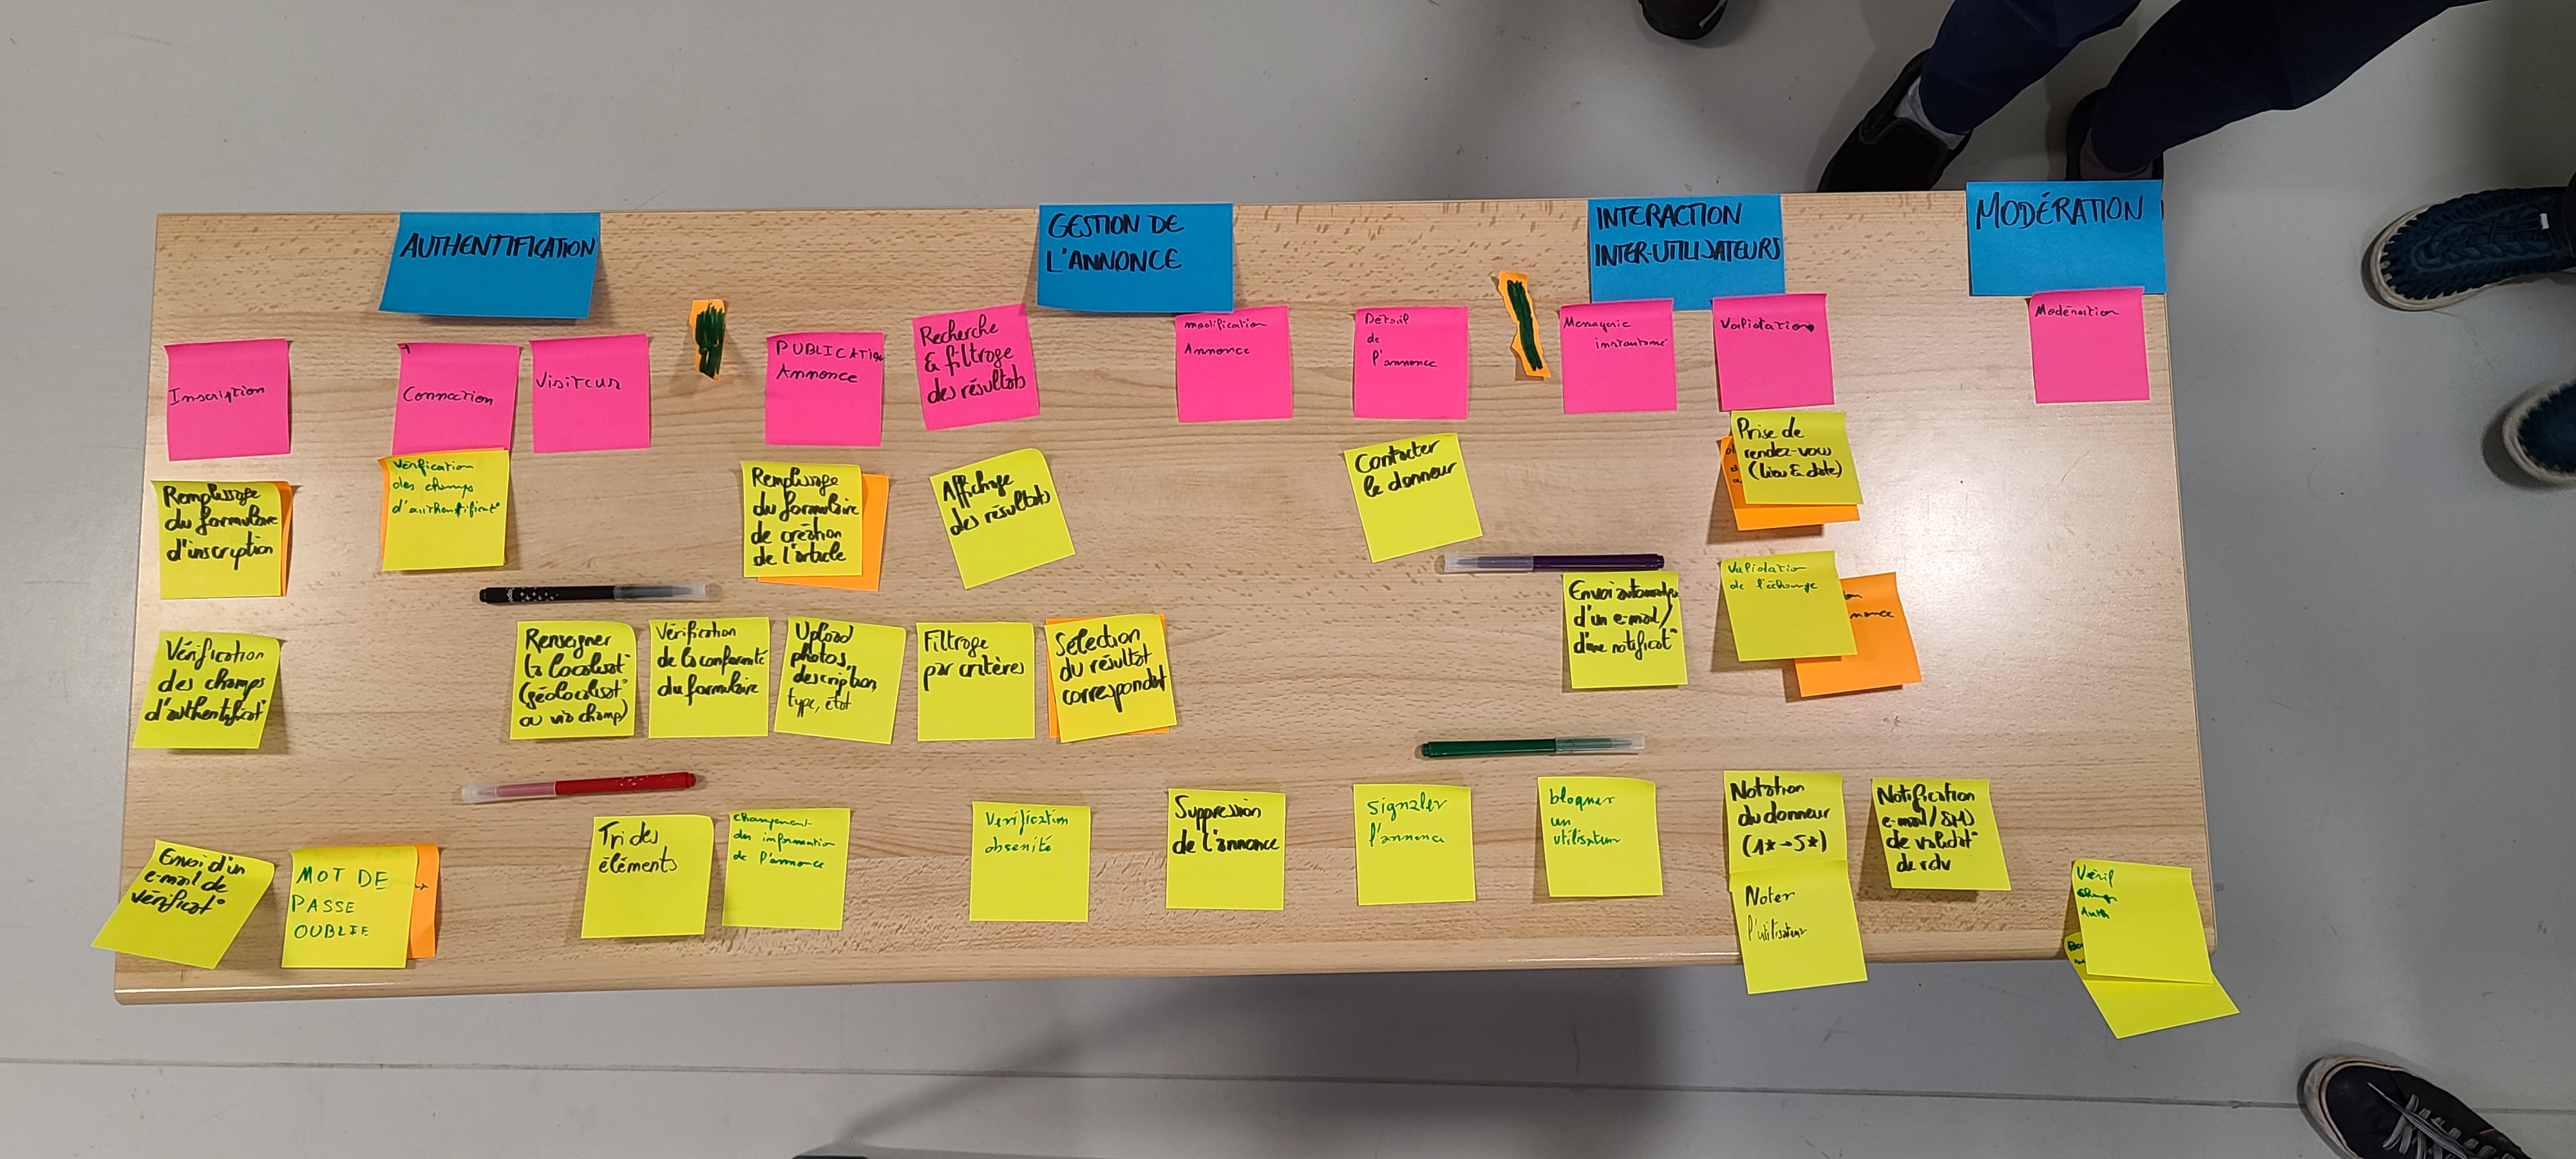 AUTHENTIFICATION
GESTION DE
L'ANNONCE
INTERACTION
INTER-UTILISATEURS
MODÉRATION
Inscription
Connection
Visiteur
PUBLICATION
Annonce
Recherche
& filtrage
des résultats
modification
Annonce
Détail
de
l'annonce
Messagerie
instantané
Validation
Modération
Remplissage
du formulaire
d'inscription
Vérification
des champs
d'authentificat°
Remplissage
du formulaire
de création
de l'article
Affichage
des résultats
Contacter
le donneur
Prise de
rendez-vous
(lieu & date)
Vérification
des champs
d'authentificat°
Renseigner
la localisat°
(géolocalisat°
ou via champ)
Vérification
de la conformité
du formulaire
Upload
photos,
description,
type, état
Filtrage
par critères
Sélection
du résultat
correspondat
Envoi automatique
d'un e-mail/
d'une notificat°
Validation
de l'échange
Envoi d'un
e-mail de
vérificat°
MOT DE
PASSE
OUBLIE
Tri des
éléments
changement
des information
de l'annonce
Verification
obsenité
Suppression
de l'annonce
Signaler
l'annonce
bloquer
un
utilisateur
Notation
du donneur
(1★→5★)
Noter
l'utilisateur
Notification
e-mail/SMS
de validat°
de rdv
Verif
champ
Auth